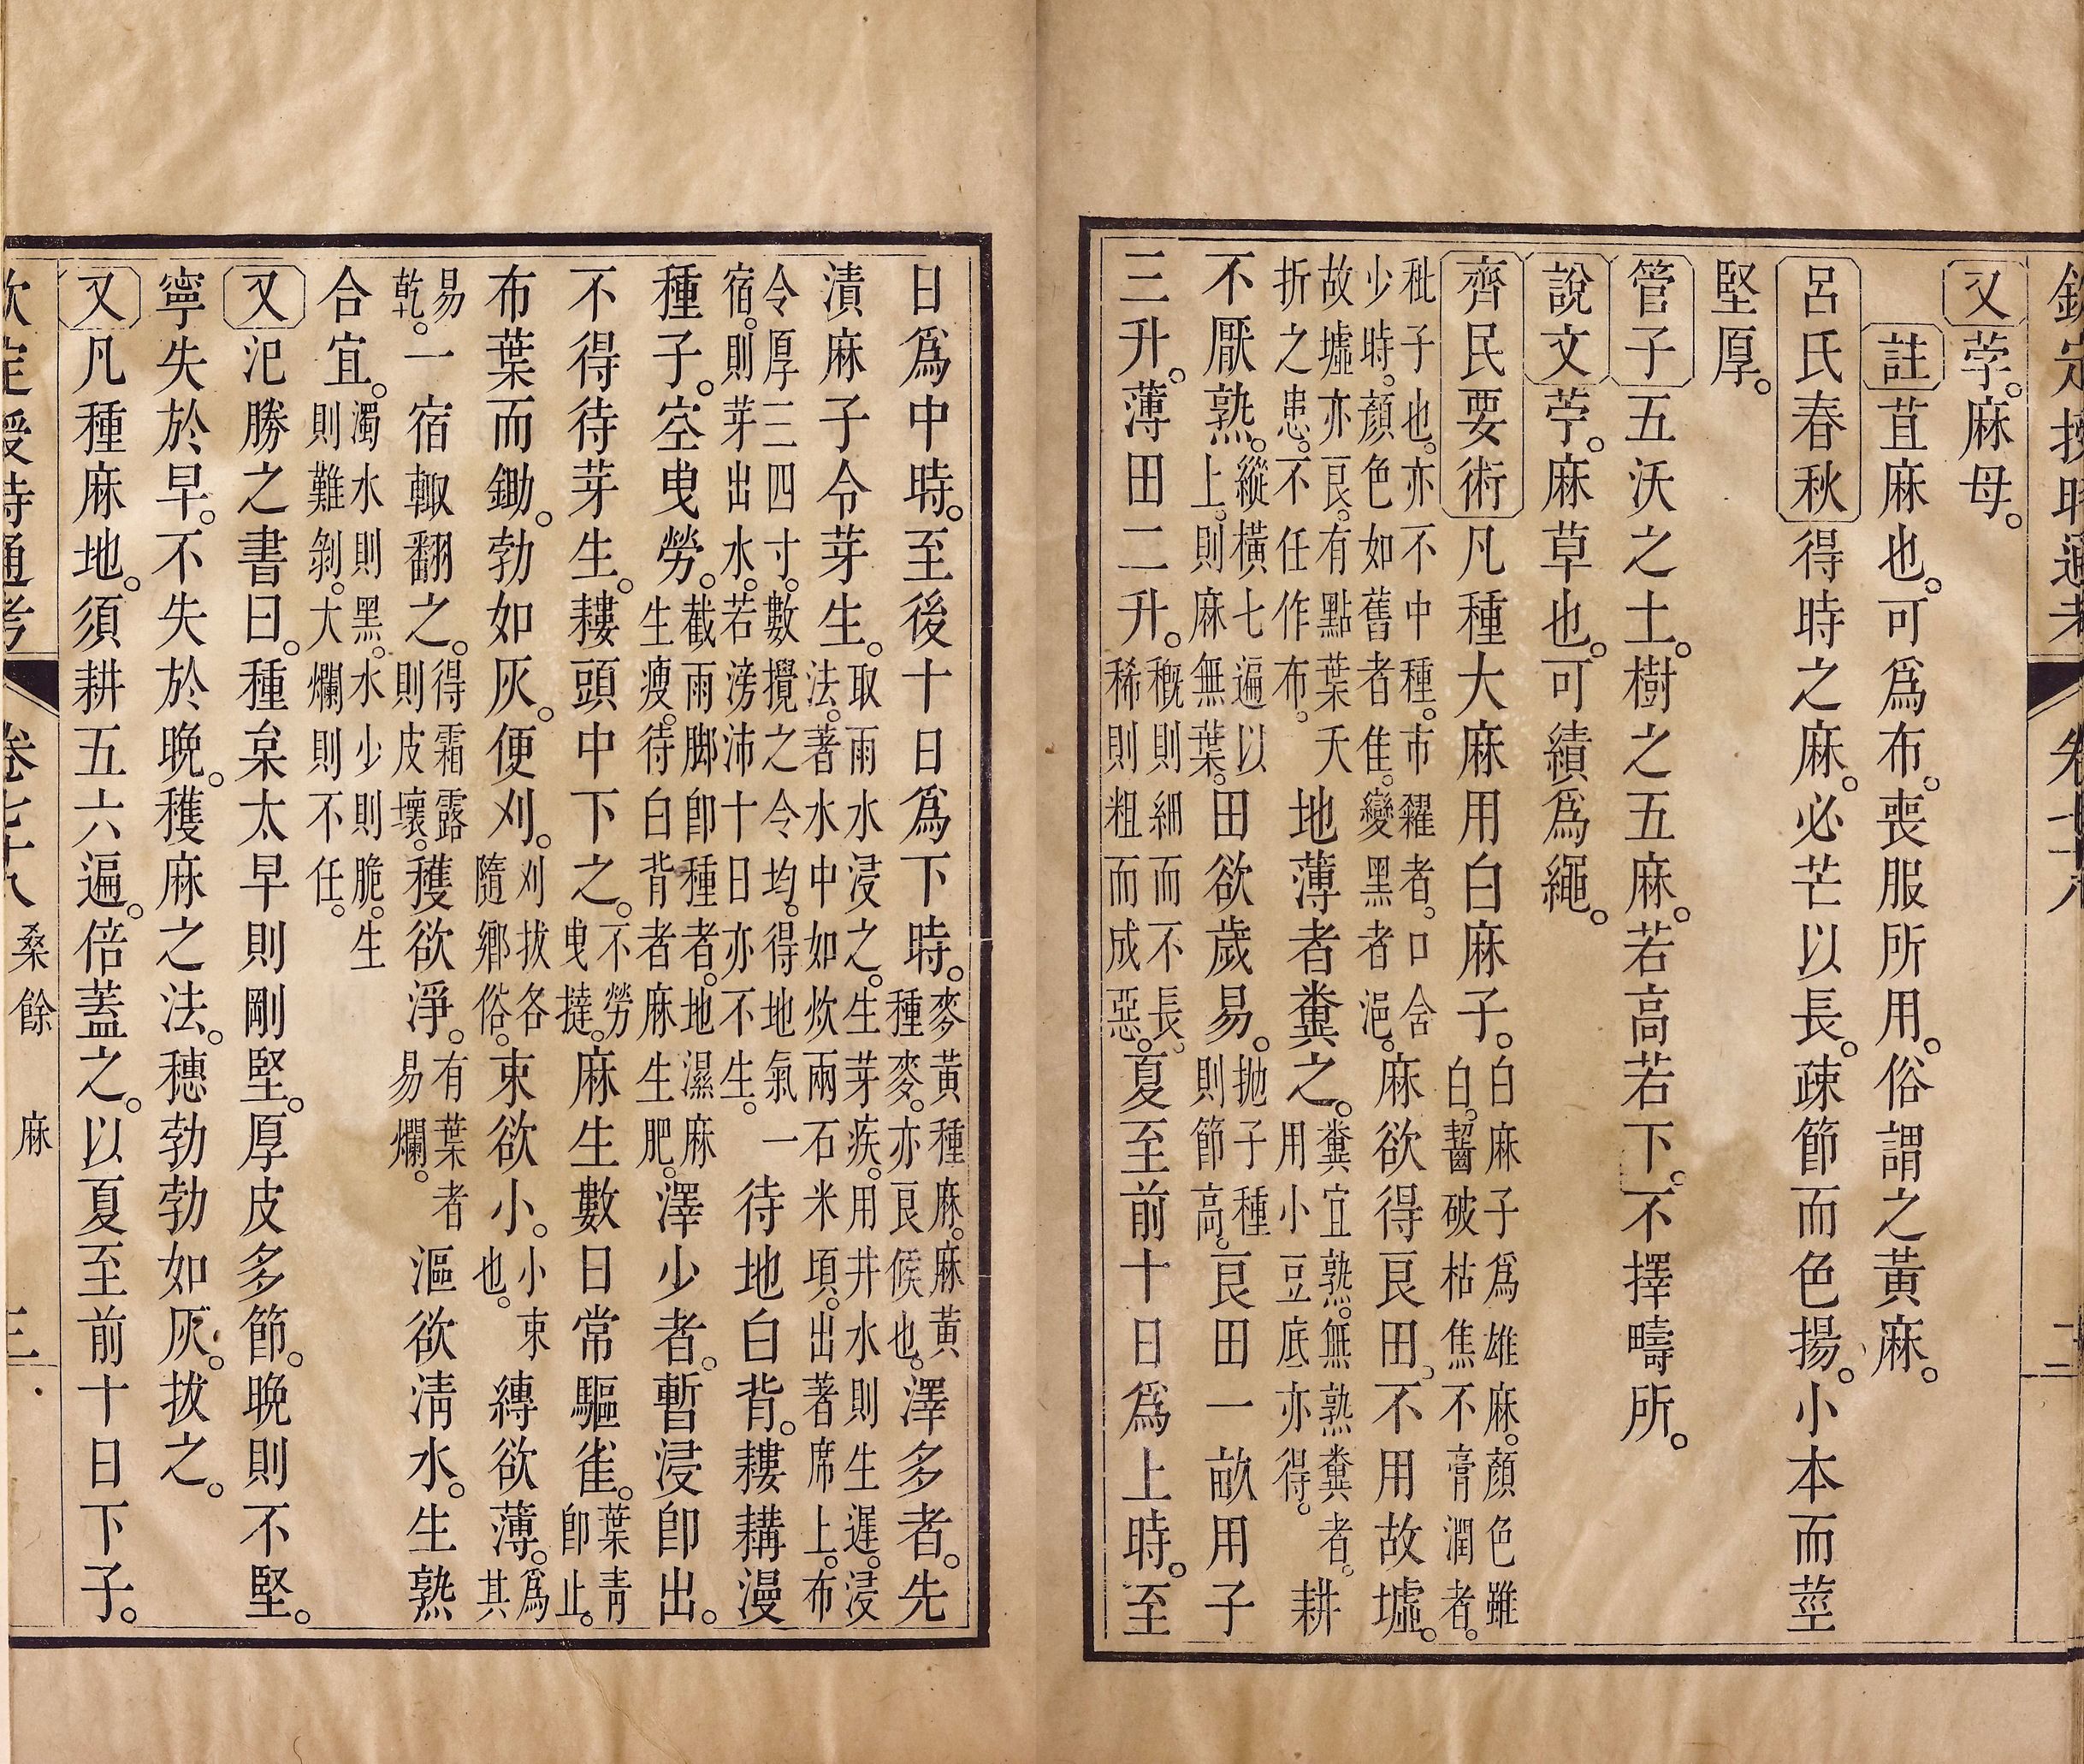 欽定授時通考 卷七十八 二
又茡。麻母。
註苴麻也。可爲布。喪服所用。俗謂之黃麻。
呂氏春秋得時之麻。必芒以長。疎節而色揚。小本而莖
堅厚。
管子五沃之土。樹之五麻。若高若下。不擇疇所。
說文茡。麻草也。可績爲繩。
齊民要術凡種大麻用白麻子。白麻子爲雄麻。顏色雖白。齧破枯焦不膏潤者。
秕子也。亦不中種。市糴者。口含少時。顏色如舊者佳。變黑者浥。麻欲得良田。不用故墟。
故墟亦良。有點葉夭折之患。不任作布。地薄者糞之。糞宜熟。無熟糞者。用小豆底亦得。耕
不厭熟。縱橫七遍以上。則麻無葉。田欲歲易。拋子種則節高。良田一畝用子
三升。薄田二升。穊則細而不長。稀則粗而成惡。夏至前十日爲上時。至
日爲中時。至後十日爲下時。麥黃種麻。麻黃種麥。亦良候也。澤多者。先
漬麻子令芽生。取雨水浸之。生芽疾。用井水則生遲。浸法。著水中如炊兩石米頃。出著席上。布
令厚三四寸。數攪之令均。得地氣一宿。則芽出水。若滂沛十日亦不生。待地白背。耬耩漫
種子。空曳勞。截雨脚卽種者。地濕麻生瘦。待白背者麻生肥。澤少者。暫浸卽出。
不得待芽生。耬頭中下之。不勞曳撻。麻生數日常驅雀。葉青卽止。
布葉而鋤。勃如灰。便刈。刈拔各隨鄉俗。束欲小。小束也。縛欲薄。爲其
易乾。一宿輙翻之。得霜露則皮壞。穫欲淨。有葉者易爛。漚欲清水。生熟
合宜。濁水則黑。水少則脆。生則難剝。大爛則不任。
又氾勝之書曰。種枲太早則剛堅。厚皮多節。晚則不堅。
寧失於早。不失於晚。穫麻之法。穗勃勃如灰。拔之。
又凡種麻地。須耕五六遍。倍蓋之。以夏至前十日下子。
欽定授時通考 卷七十八 桑餘 麻 三